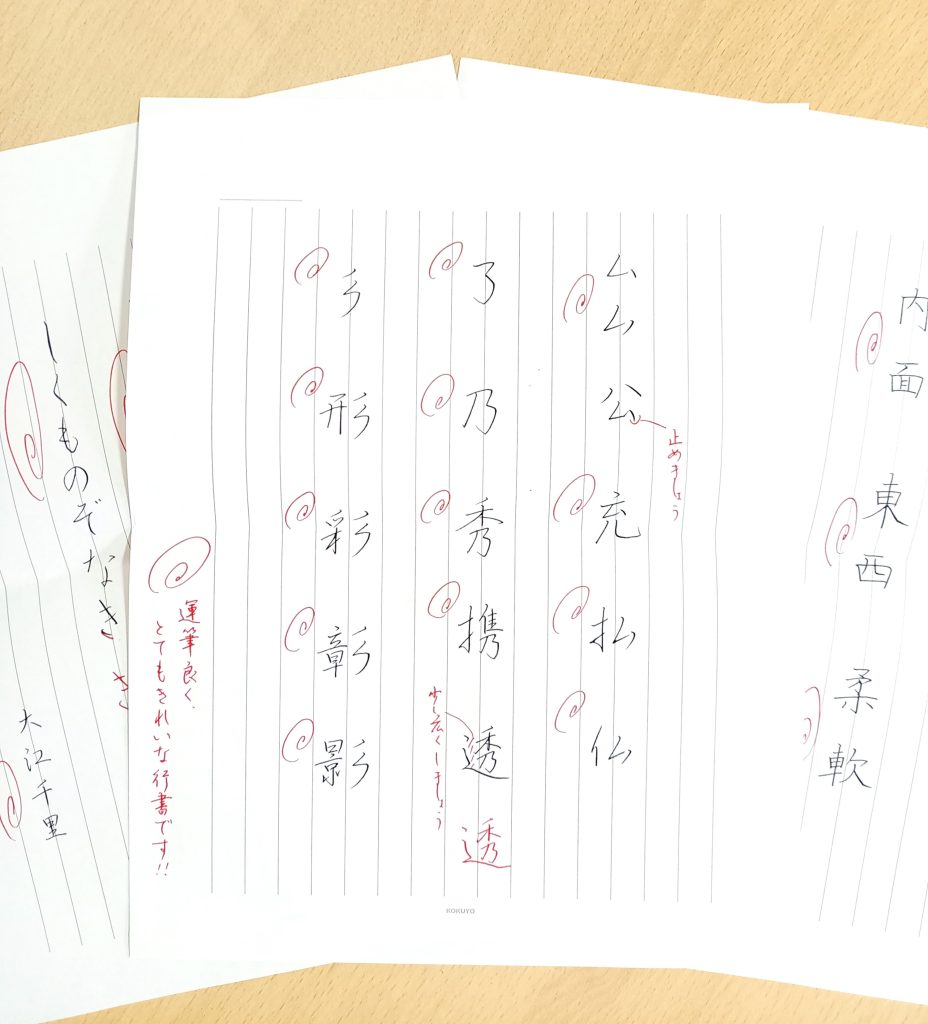 内面
東西
柔軟
止めましょう
ム
ム
公
充
払
仏
乃
秀
携
透
透
少し広くしましょう
彡
形
彩
彰
影
運筆良く、
とてもきれいな行書です!!
KOKUYO
しくものぞなき
き
大江千里